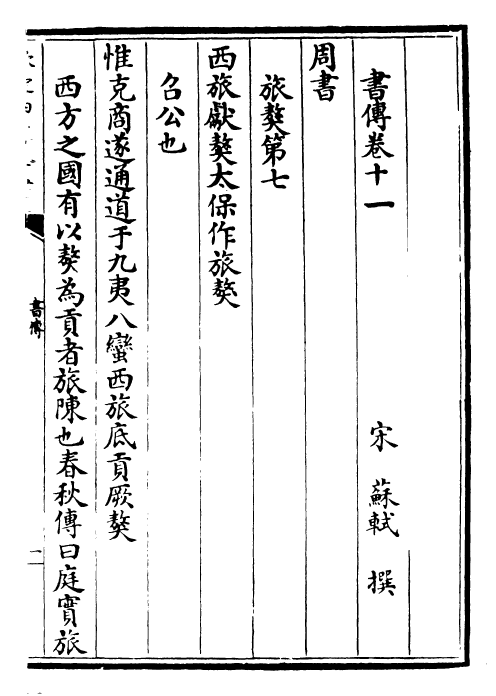 書傳卷十一
宋 蘇軾 撰
周書
旅獒第七
西旅獻獒太保作旅獒
召公也
惟克商遂通道于九夷八蠻西旅底貢厥獒
西方之國有以獒為貢者旅陳也春秋傳曰庭實旅
書傳